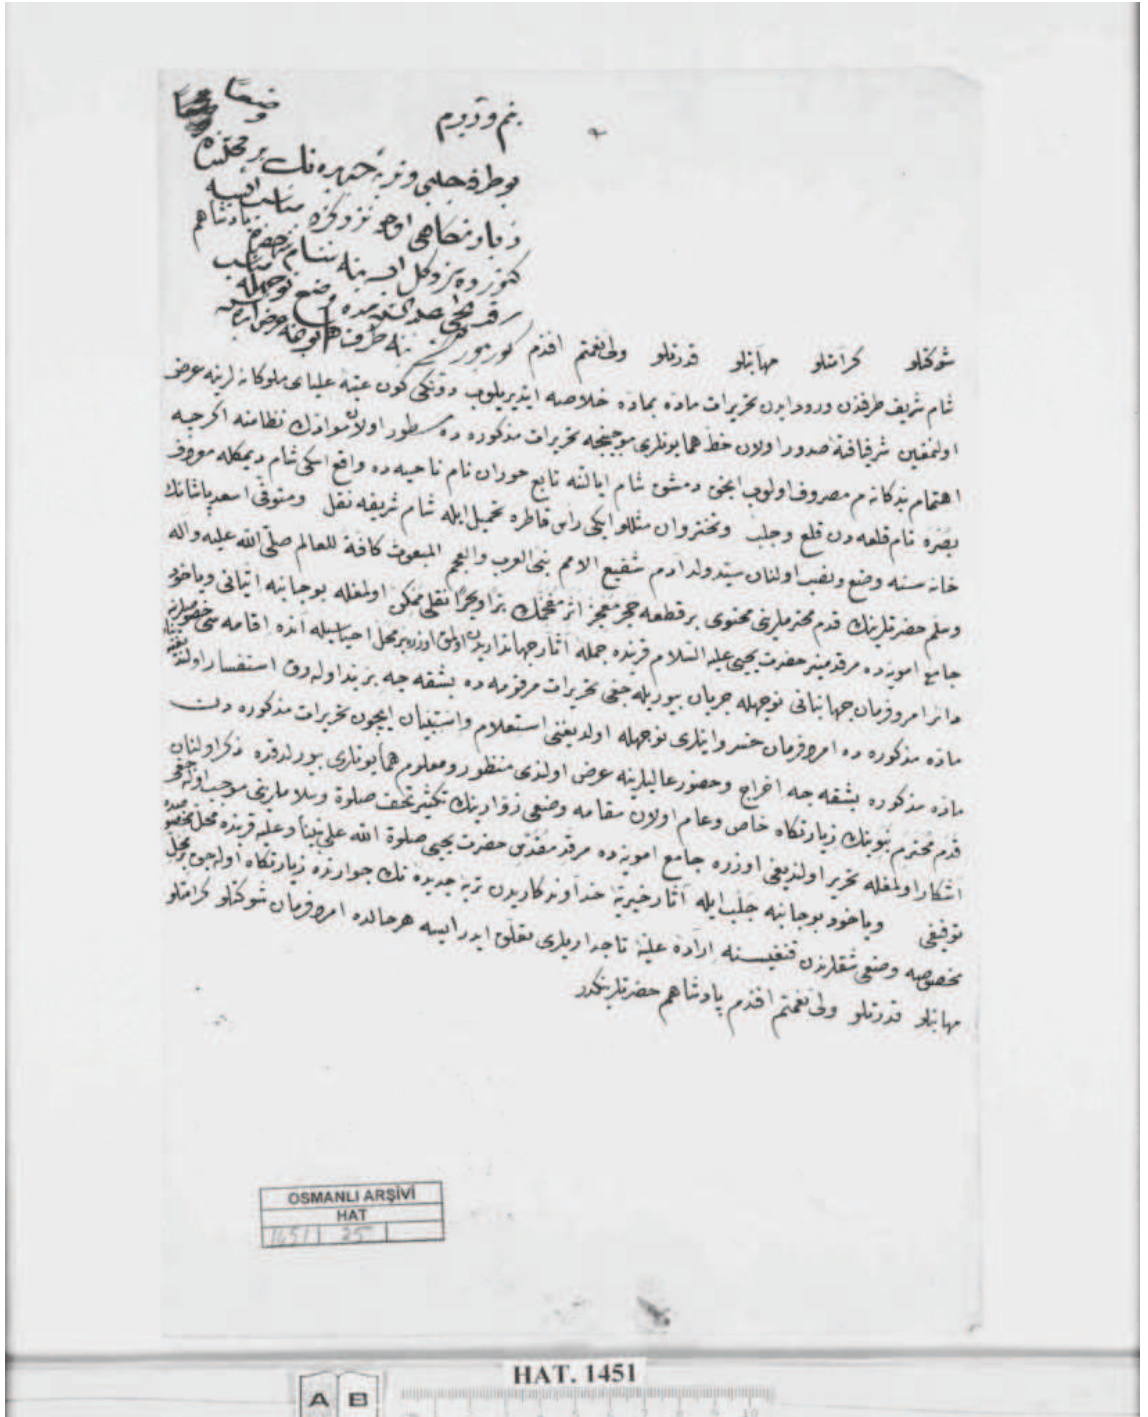 بنم وزيرم
بو طرفه جلبى و تربهٔ جديده نك بر محلنده وضعى
زيارتكاهى اوله مناسب ايسه
ينه شام شريفده پادشاهم
وضع
شوكتلو كرامتلو مهابتلو قدرتلو ولى نعمتم افندم
شام شريف طرفندن ورود ايدن تحريرات ماده بماده خلاصه ايتديريلوب دونكى كون عتبهٔ علياى ملوكانه لرينه عرض
اولنمغين شرفيافتهٔ صدور اولان خط همايونلرى موجبنجه تحريرات مذكوره ده مسطور اولان موادك نظامنه اكرچه
اهتمام بندكانه م مصروف اولوب انجق دمشق شام ايالتنه تابع حوران نام ناحيه ده واقع اسكى شام ديمكله معروف
بصره نام قلعه دن قلع و جلب و تختروان مثللو ايكى رأس قاطره تحميل ايله شام شريفه نقل و متوفى اسعد پاشانك
خانه سنه وضع و نصب اولنان سيد ولد آدم شفيع الامم نبى العرب والعجم المبعوث كافة للعالم صلى الله عليه وآله
وسلم حضرتلرينك قدم محترملرينى محتوى بر قطعه حجر معجز اثر مفخمك براً و بحراً نقلى ممكن اولمغله بو جانبه اتيانى وياخود
جامع امويه ده مرقد منير حضرت يحيى عليه السلام قربنده جمله آثار جهانداريدن اولمق اوزره بر محل احياسيله آنده اقامه سى خصوصلرينه
دائر امر و فرمان جهانبانى نوجهله جريان بيوريله جغى تحريرات مرقومه ده بشقه جه بر بند اوله رق استفسار اولنديغنه
ماده مذكوره ده امر و فرمان خسروانه لرى نوجهله اولديغنى استعلام و استبيان ايچون تحريرات مذكوره دن
ماده مذكوره بشقه جه اخراج و حضور عاليلرينه عرض اولندى منظور و معلوم همايونلرى بيورلدقده ذكر اولنان
قدم محترم نبوينك زيارتكاه خاص و عام اولان مقامه وضعى زوارينك تكثير تحف صلوة و سلاملرينى موجب اوله جغى
آشكار اولمغله تحرير اولنديغى اوزره جامع امويه ده مرقد مقدس حضرت يحيى صلوة الله على نبينا وعليه قربنده محل مخصوصه
توقيفى وياخود بو جانبه جلب ايله آثار خيريهٔ خداوندكاريدن تربهٔ جديده نك جوارنده زيارتكاه اوله جق بر محل
مخصوصه وضعى شقلرندن قنغيسنه ارادهٔ عليهٔ تاجداريلرى تعلق ايدر ايسه هر حالده امر و فرمان شوكتلو كرامتلو
مهابتلو قدرتلو ولى نعمتم افندم پادشاهم حضرتلرينكدر
OSMANLI ARŞİVİ
HAT
1451 25
HAT. 1451
A B